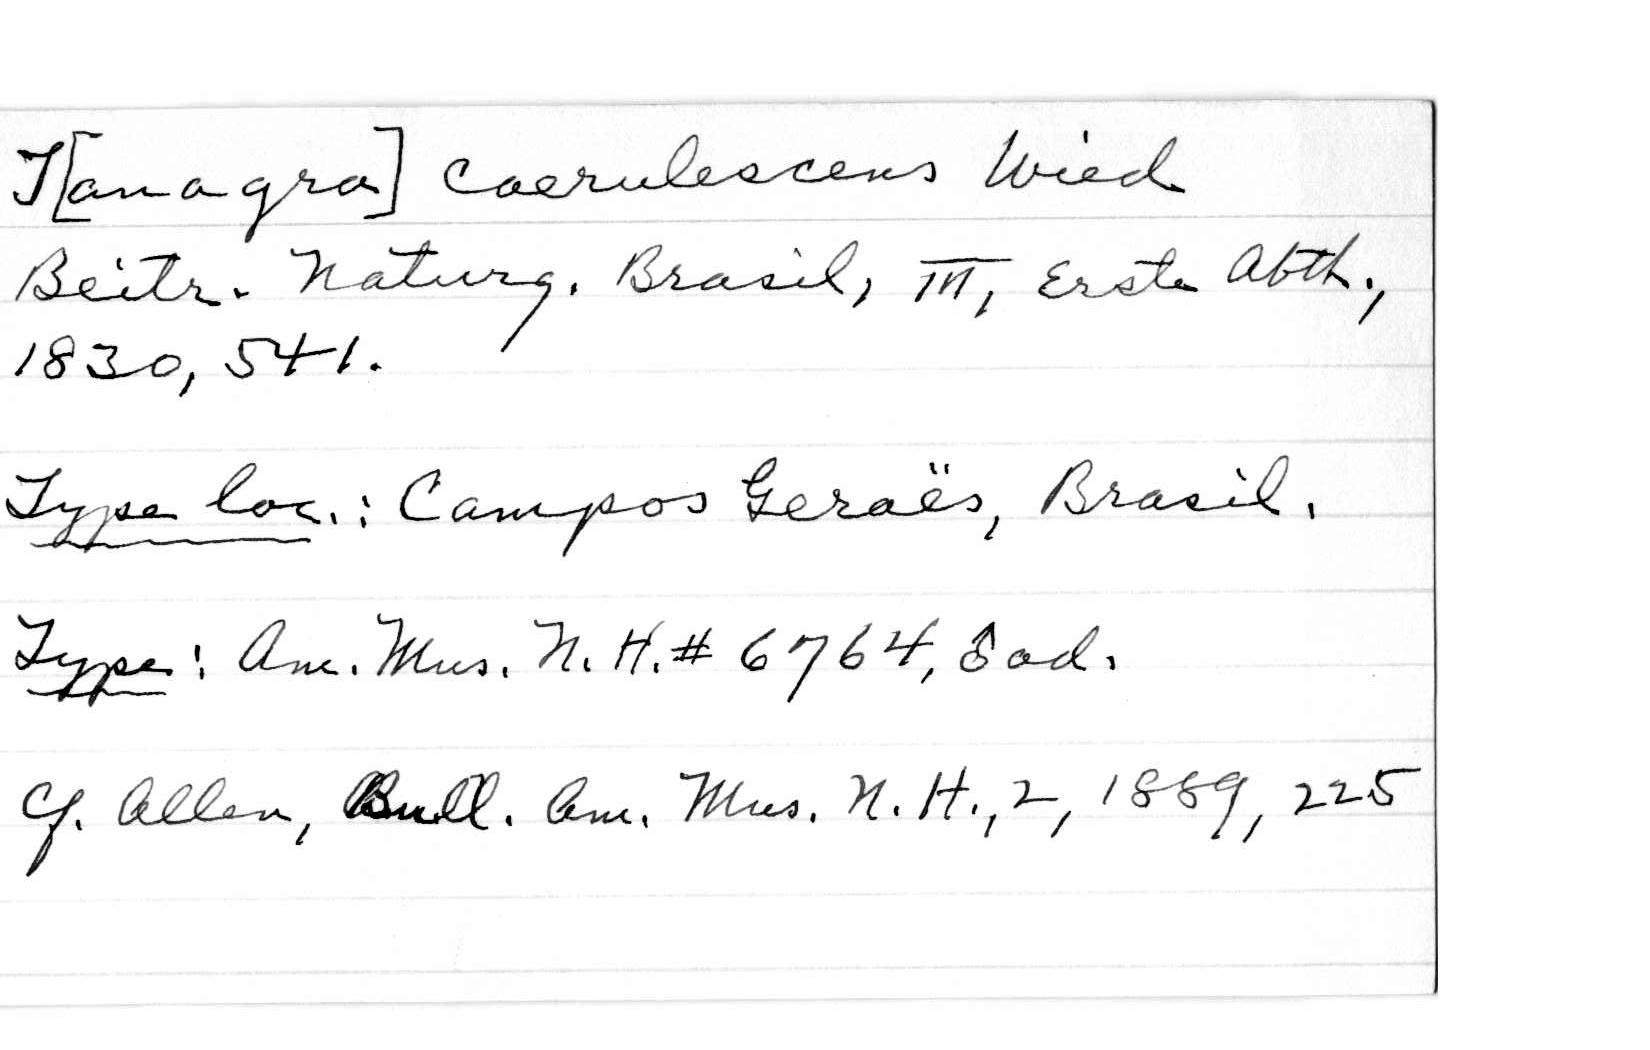 T[anagra] coerulescens Wied
Beitr. Naturg. Brasil, III, Erste Abth.,
1830, 541.
Type loc.: Campos Geraës, Brasil.
Type: Am. Mus. N. H. # 6764, ♂ ad.
Cf. Allen, Bull. Am. Mus. N. H., 2, 1889, 225